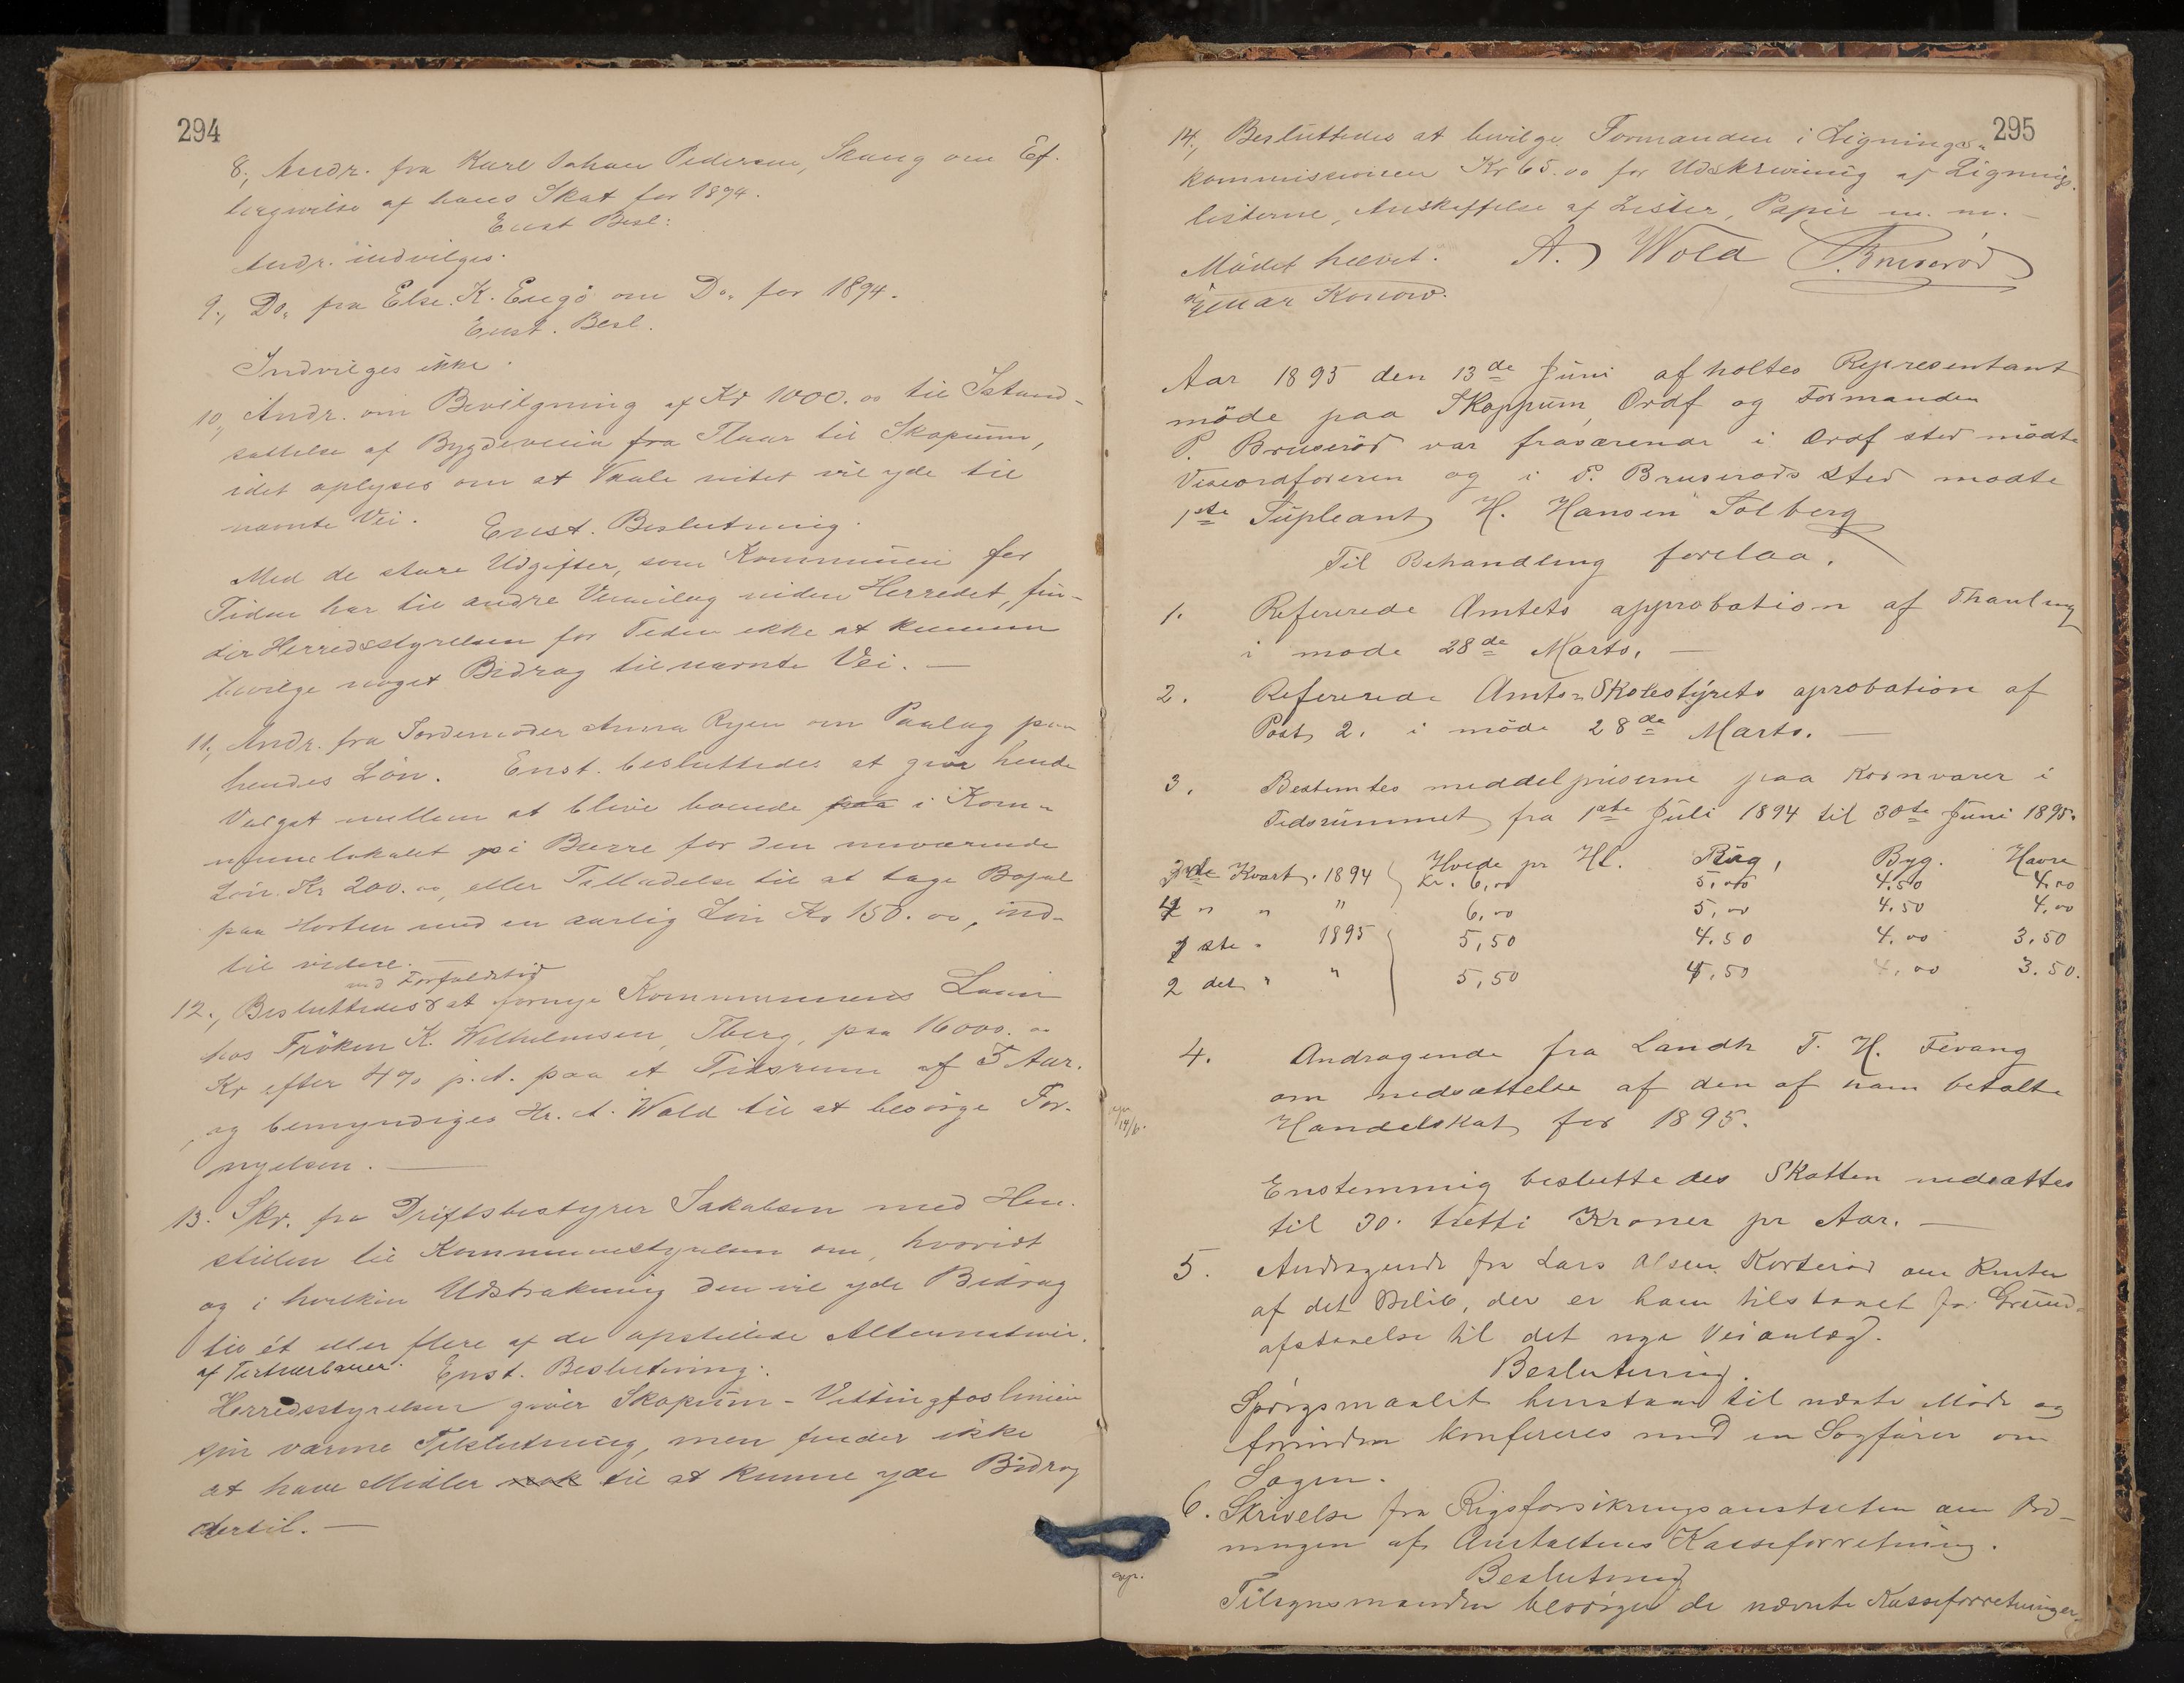 294
8., Andr. fra Karl Johan Pedersen, Skaug om Ef-
tergivelse af hans Skat for 1894.
Enst Besl:
Andr. indvilges.
9., Do. fra Else. K. Engö om Do. for 1894.
Enst. Besl.
Indvilges ikke.
10., Andr. om Bevilgning af Kr 1000.00 til Istand-
sættelse af Bygdeveien fra til Skopum,
idet oplyses om at Vaale intet vil yde til
nævnte Vei. Enst. Beslutning.
Med de store Udgifter, som Kommunen for
Tiden har til andre Veianlæg inden Herredet, fin-
der Herredsstyrelsen for Tiden ikke at kunne
bevilge noget Bidrag til nævnte Vei. —
11., Andr. fra Jordemoder Anna Ryen om Paalæg paa
hendes Lön. Enst. besluttedes at give hende
Valget mellem at blive boende paa i Kom-
munelokalet i Borre for den nuværende
Lön Kr 200.00, eller Tilladelse til at tage Bopæl
paa Horten med en aarlig Lön Kr 150.00, ind-
til videre. —
med Forfaldstid
12., Besluttedes at fornye Kommunens Laan
hos Fröken K. Wilhelmsen, Tberg, paa 16000.00
Kr efter 4% p.A. paa et Tidsrum af 5 Aar.
og bemyndiges Hr. A. Wold til at besörge For-
nyelsen. —
13. Skr. fra Driftsbestyrer Jakobsen med Hen-
stillen til Kommunestyrelsen om, hvorvidt
og i hvilken Udstrækning den vil yde Bidrag
til ét eller flere af de opstillede Alternativer.
af Tertiærbaner. Enst. Beslutning.
Herredsstyrelsen giver Skopum-Vittingfoslinien
sin varme Tilslutning, men finder ikke
at have Midler nok til at kunne yde Bidrag
dertil. —
295
14., Besluttedes at bevilge Formanden i Lignings-
kommissionen Kr 65.00 for Udskrivning af Lignings-
listerne, Anskaffelse af Lister, Papir m. m. —
Mödet hævet. A. Wold P. Bruseröd
Einar Konow.
Aar 1895 den 13de Juni afholtes Representant
möde paa Skoppum, Ordf og Formanden
P. Bruseröd var fraværende i Ordf sted mödte
Viseordföreren og i P. Bruseröds sted mødte
1ste Supleant H. Hansen Solberg
Til Behandling forelaa.
1. Refererede Amtets approbation af Thaulug
i möde 28de Marts. —
2. Refererede Amts-Skolestyrets aprobation af
Post 2. i möde 28de Marts. —
3. Bestemtes meddelpriserne paa Kornvarer i
Tidsrummet fra 1ste Juli 1894 til 30te Juni 1895.
Hvede pr Hl. Rug, Byg. Havre
3die Kvart. 1894 Kr. 6,00 5,00 4.50 4,00
4 " " " 6,00 5,00 4.50 4,00
1 ste " 1895 5,50 4.50 4,00 3.50
2 det " " 5,50 4,50 4,00 3.50.
4. Andragende fra Landh T. H. Fevang
om nedsættelse af den af ham betalte
Handelskat for 1895.
14/6.
Enstemmig beslutte des Skatten nedsættes
til 30. tretti Kroner pr Aar. —
5. Andragende fra Lars Olsen Korteröd om Renter
af det Belöb, der er ham tilstaaet for Grund-
afstaaelse til det nye Veianlæg.
Beslutning.
Spörgsmaalet henstaar til næste Möde og
forinden konfereres med en Sagförer om
Sagen.
6. Skrivelse fra Rigsforsikringsanstalten om Ord-
ningen af Anstaltens Kasseforretning.
exp.
Beslutning
Tilsynsmanden besörger de nævnte Kasseforretninger.